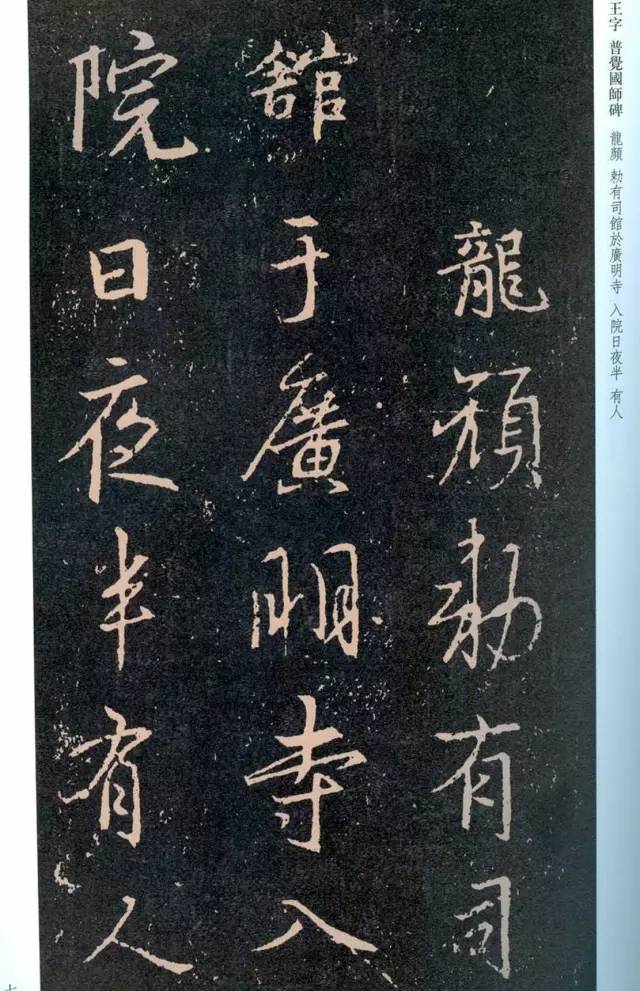 王字 普覺國師碑 龍顏 勅有司館於廣明寺 入院日夜半 有人
龍顏勅有司
舘于廣明寺入
院日夜半有人